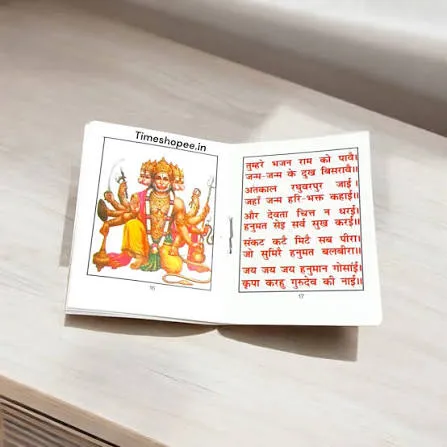 Timeshopee.in
16
तुम्हरे भजन राम को पावै।
जन्म-जन्म के दुख बिसरावै।।
अंतकाल रघुवरपुर जाई।
जहाँ जन्म हरि-भक्त कहाई।।
और देवता चित्त न धरई।
हनुमत सेइ सर्व सुख करई।।
संकट कटै मिटै सब पीरा।
जो सुमिरै हनुमत बलबीरा।।
जय जय जय हनुमान गोसांई।
कृपा करहु गुरुदेव की नाई।।
17